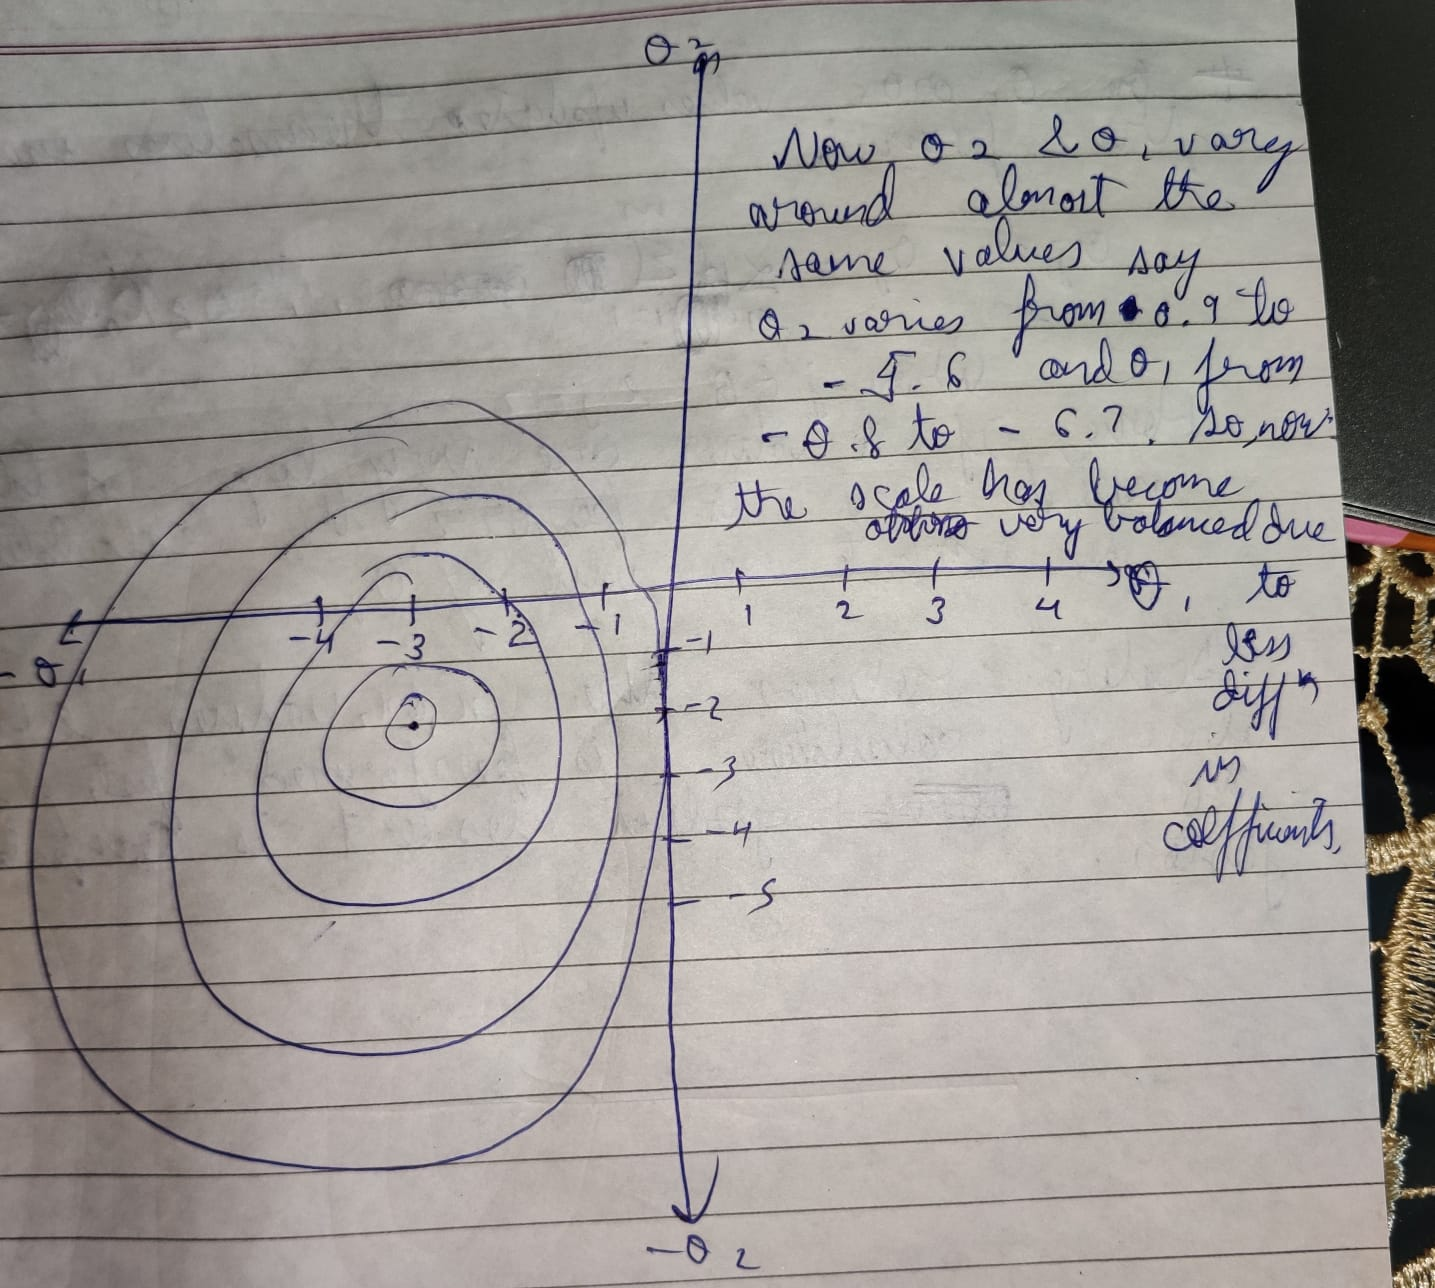 θ2
Now θ2 & θ1 vary
around almost the
same values say
θ2 varies from 0.9 to
-5.6 and θ1 from
-0.8 to - 6.7. So, now
the scale has become
very balanced due
θ1 to
1 2 3 4
-4 -3 -2 -1
-θ1
less
diffn
in
coefficients.
-1
-2
-3
-4
-5
-θ2